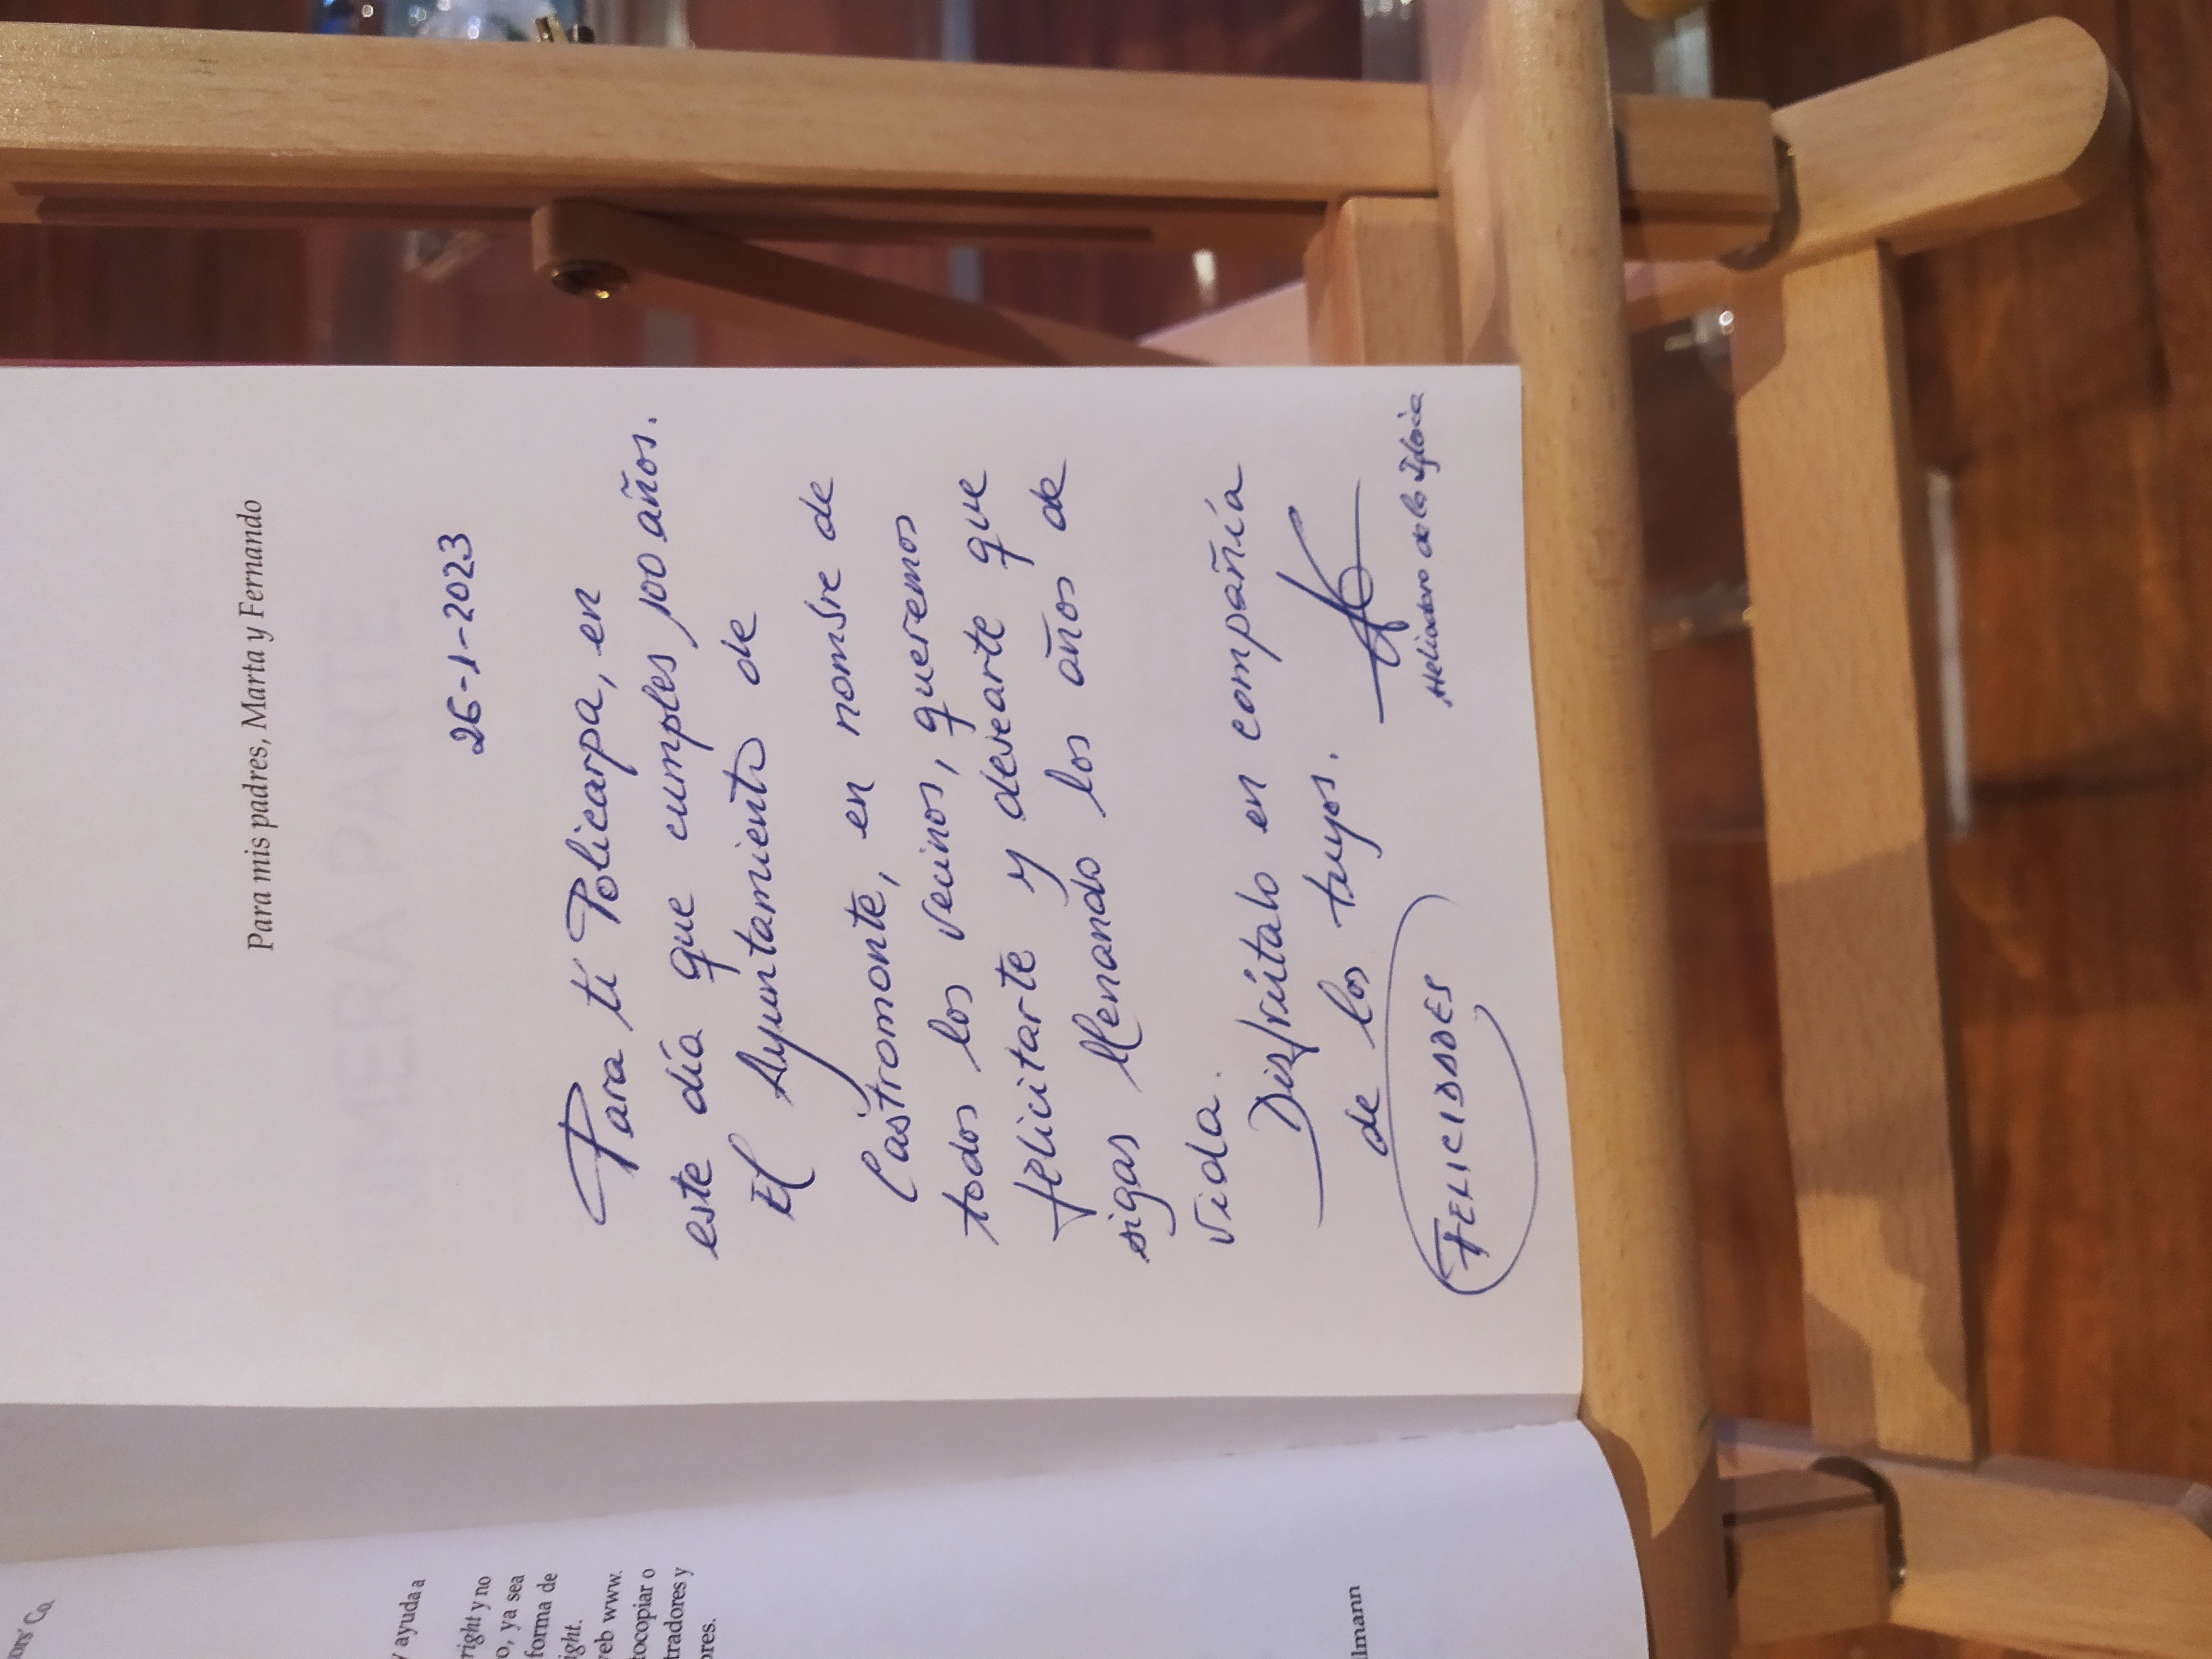 ors' Co.
y ayuda a
right y no
o, ya sea
forma de
ight.
veb www.
tocopiar o
tradores y
ores.
lmann
Para mis padres, Marta y Fernando
PRIMERA PARTE
26-1-2023
Para ti Policarpa, en
este día que cumples 100 años.
El Ayuntamiento de
Castromonte, en nombre de
todos los vecinos, queremos
felicitarte y desearte que
sigas llenando los años de
vida.
Disfrútalo en compañía
de los tuyos.
FELICIDADES
Heliodoro de la Iglesia